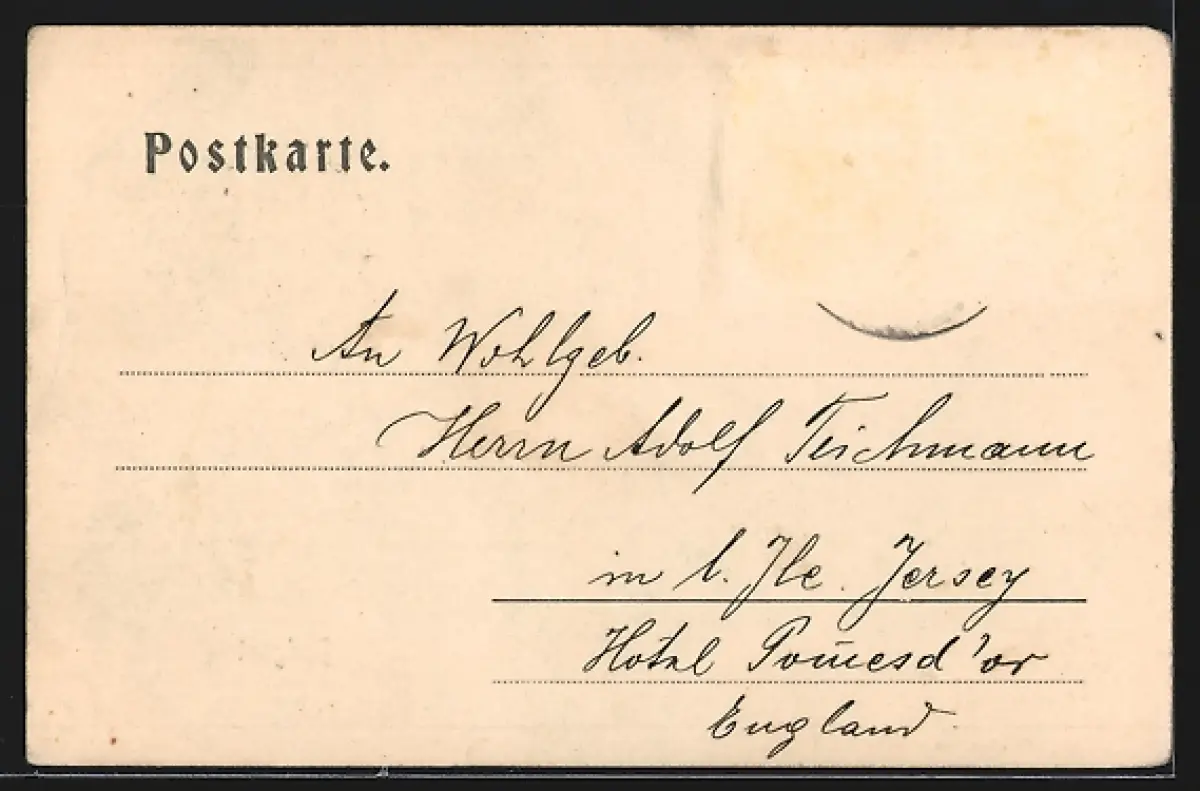 Postkarte.
An Wohlgeb.
Herrn Adolf Teichmann
in l. Jle. Jersey
Hotel Pom̄esd'or
England.